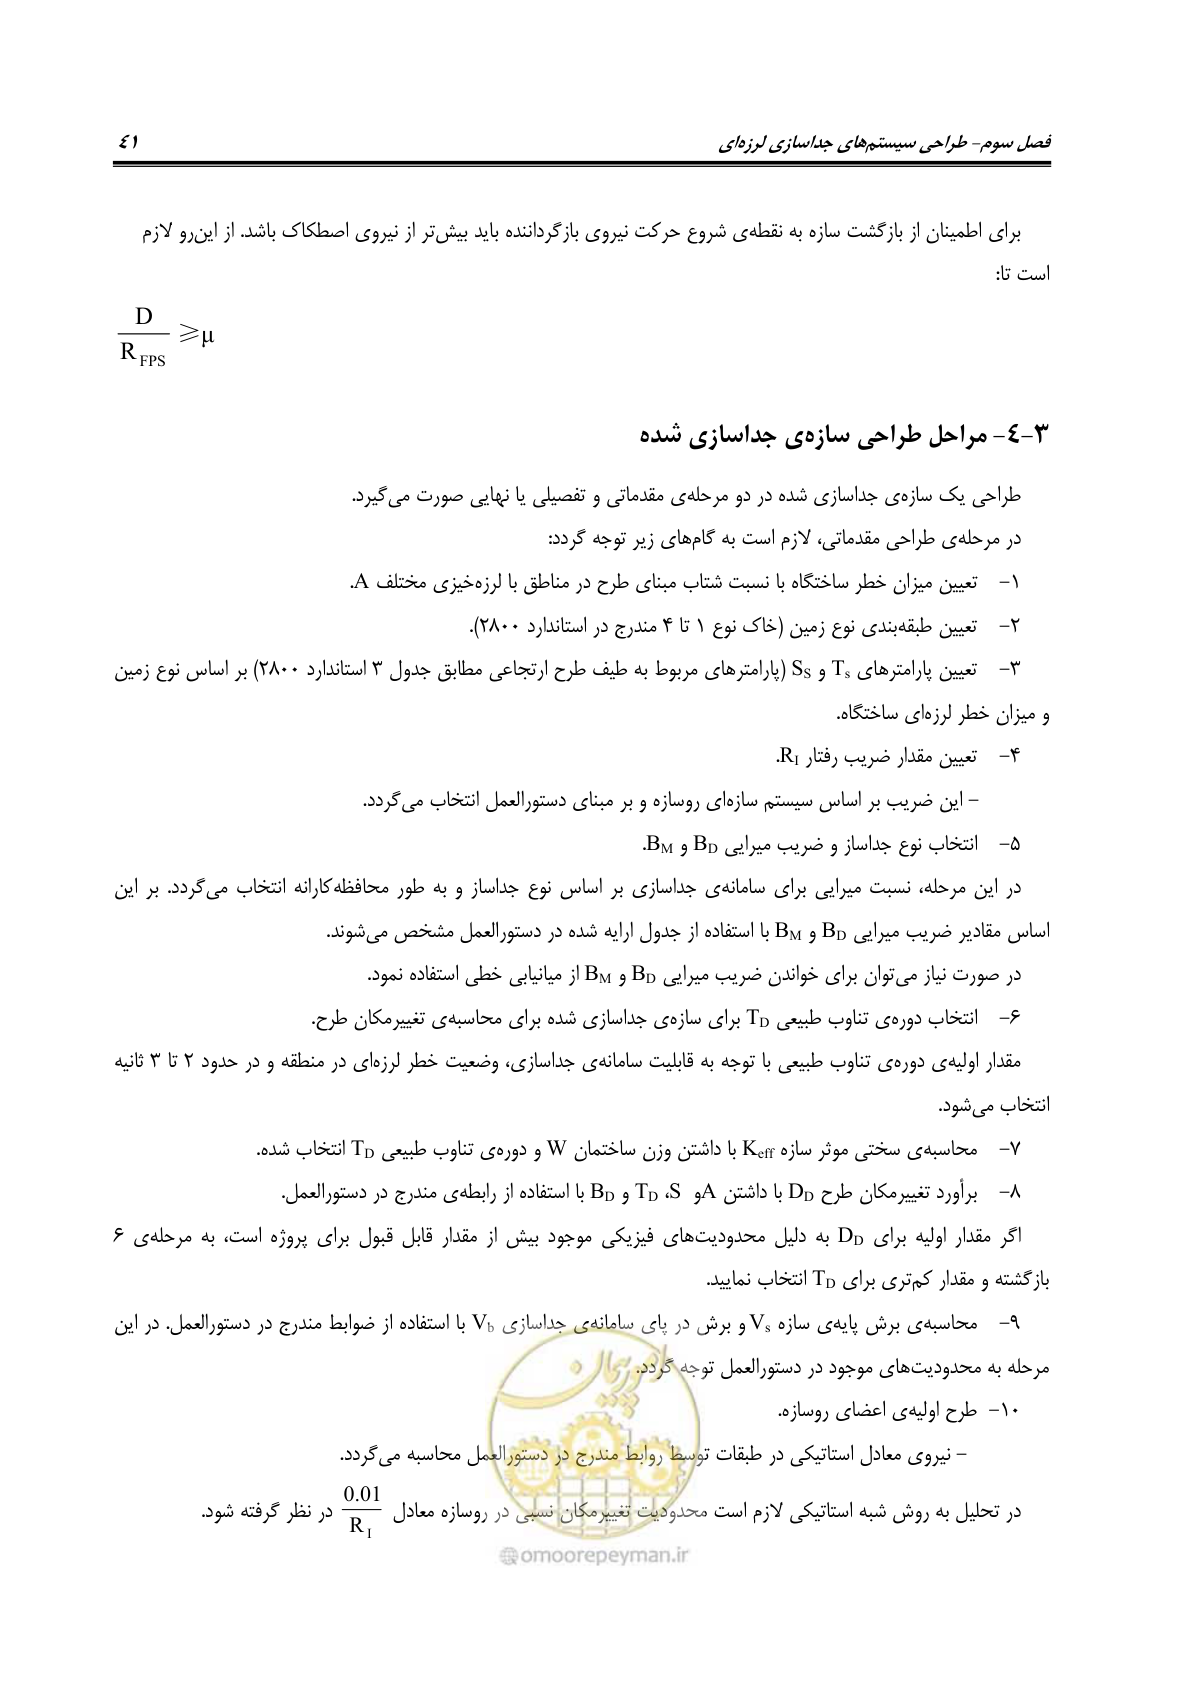 فصل سوم- طراحی سیستم‌های جداسازی لرزه‌ای ٤١
برای اطمینان از بازگشت سازه به نقطه‌ی شروع حرکت نیروی بازگرداننده باید بیش‌تر از نیروی اصطکاک باشد. از این‌رو لازم
است تا:
D / R FPS ≥ μ
۳-٤- مراحل طراحی سازه‌ی جداسازی شده
طراحی یک سازه‌ی جداسازی شده در دو مرحله‌ی مقدماتی و تفصیلی یا نهایی صورت می‌گیرد.
در مرحله‌ی طراحی مقدماتی، لازم است به گام‌های زیر توجه گردد:
۱- تعیین میزان خطر ساختگاه با نسبت شتاب مبنای طرح در مناطق با لرزه‌خیزی مختلف A.
۲- تعیین طبقه‌بندی نوع زمین (خاک نوع ۱ تا ۴ مندرج در استاندارد ۲۸۰۰).
۳- تعیین پارامترهای Ts و SS (پارامترهای مربوط به طیف طرح ارتجاعی مطابق جدول ۳ استاندارد ۲۸۰۰) بر اساس نوع زمین
و میزان خطر لرزه‌ای ساختگاه.
۴- تعیین مقدار ضریب رفتار RI.
- این ضریب بر اساس سیستم سازه‌ای روسازه و بر مبنای دستورالعمل انتخاب می‌گردد.
۵- انتخاب نوع جداساز و ضریب میرایی BD و BM.
در این مرحله، نسبت میرایی برای سامانه‌ی جداسازی بر اساس نوع جداساز و به طور محافظه‌کارانه انتخاب می‌گردد. بر این
اساس مقادیر ضریب میرایی BD و BM با استفاده از جدول ارایه شده در دستورالعمل مشخص می‌شوند.
در صورت نیاز می‌توان برای خواندن ضریب میرایی BD و BM از میانیابی خطی استفاده نمود.
۶- انتخاب دوره‌ی تناوب طبیعی TD برای سازه‌ی جداسازی شده برای محاسبه‌ی تغییرمکان طرح.
مقدار اولیه‌ی دوره‌ی تناوب طبیعی با توجه به قابلیت سامانه‌ی جداسازی، وضعیت خطر لرزه‌ای در منطقه و در حدود ۲ تا ۳ ثانیه
انتخاب می‌شود.
۷- محاسبه‌ی سختی موثر سازه Keff با داشتن وزن ساختمان W و دوره‌ی تناوب طبیعی TD انتخاب شده.
۸- برأورد تغییرمکان طرح DD با داشتن A و S، TD و BD با استفاده از رابطه‌ی مندرج در دستورالعمل.
اگر مقدار اولیه برای DD به دلیل محدودیت‌های فیزیکی موجود بیش از مقدار قابل قبول برای پروژه است، به مرحله‌ی ۶
بازگشته و مقدار کم‌تری برای TD انتخاب نمایید.
۹- محاسبه‌ی برش پایه‌ی سازه Vs و برش در پای سامانه‌ی جداسازی Vb با استفاده از ضوابط مندرج در دستورالعمل. در این
مرحله به محدودیت‌های موجود در دستورالعمل توجه گردد.
۱۰- طرح اولیه‌ی اعضای روسازه.
- نیروی معادل استاتیکی در طبقات توسط روابط مندرج در دستورالعمل محاسبه می‌گردد.
در تحلیل به روش شبه استاتیکی لازم است محدودیت تغییرمکان نسبی در روسازه معادل 0.01 / R I در نظر گرفته شود.
امور پیمان
@omoorepeyman.ir